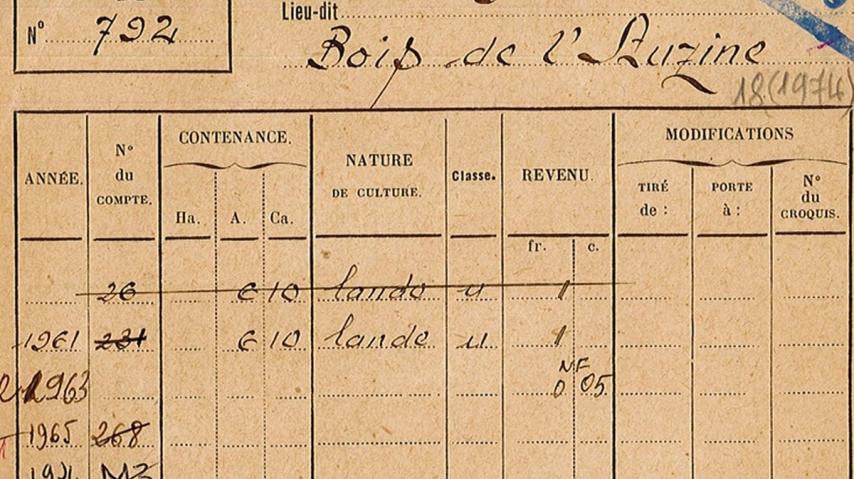 Lieu-dit
N° 792
Bois de l'Auzine
18 (1974)
ANNÉE. N° du COMPTE. CONTENANCE. NATURE DE CULTURE. Classe. REVENU. MODIFICATIONS
Ha. A. Ca. TIRÉ de : PORTE à : N° du CROQUIS.
fr. c.
26 6 10 lande u 1
1961 231 6 10 lande u 1
NF
1963 0 05
1965 268